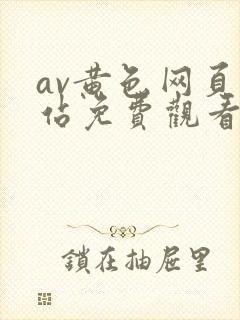 av黄色网頁
佔免費觀看
鎖在抽屉里